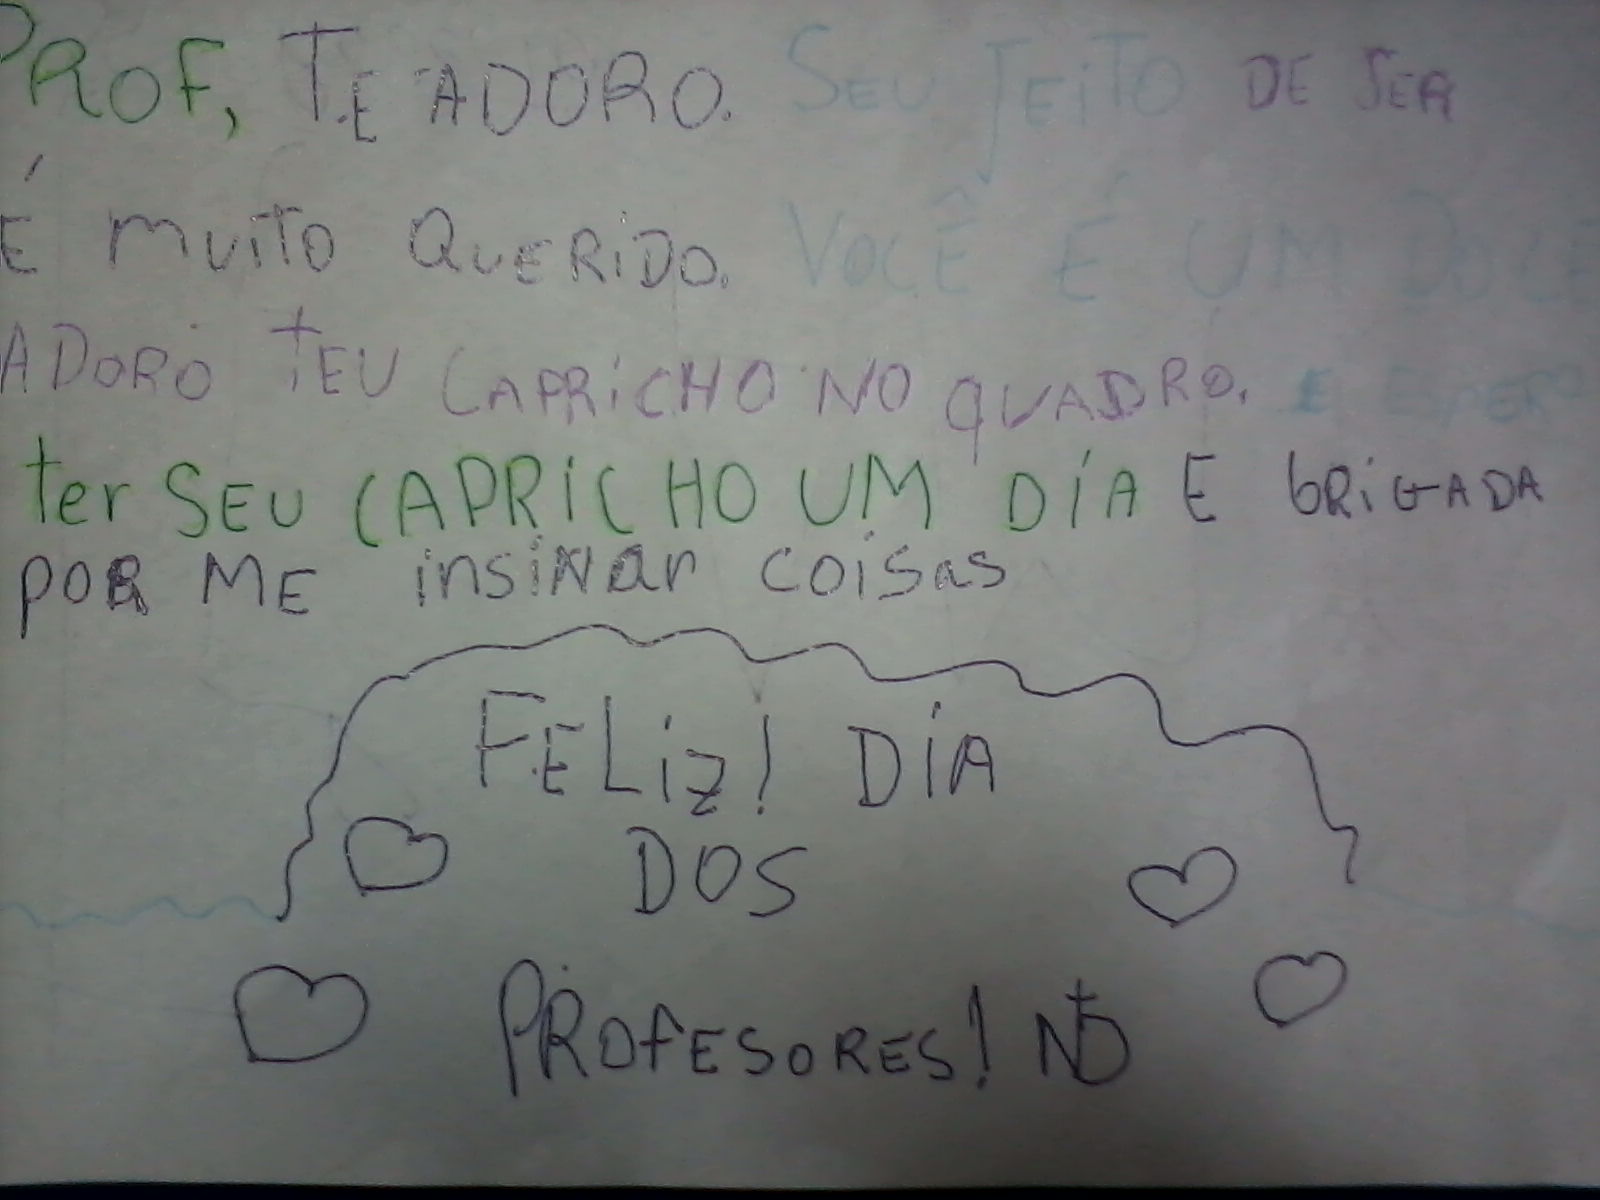 PROF, TE ADORO. SEU JEITO DE SER
É MUITO QUERIDO. VOCÊ É UM DOCE
ADORO TEU CAPRICHO NO QUADRO. E ESPERO
ter SEU CAPRICHO UM DIA E bRIGADA
POR ME insiNar coisas
FELiz! DIA
DOS
PROFESORES!